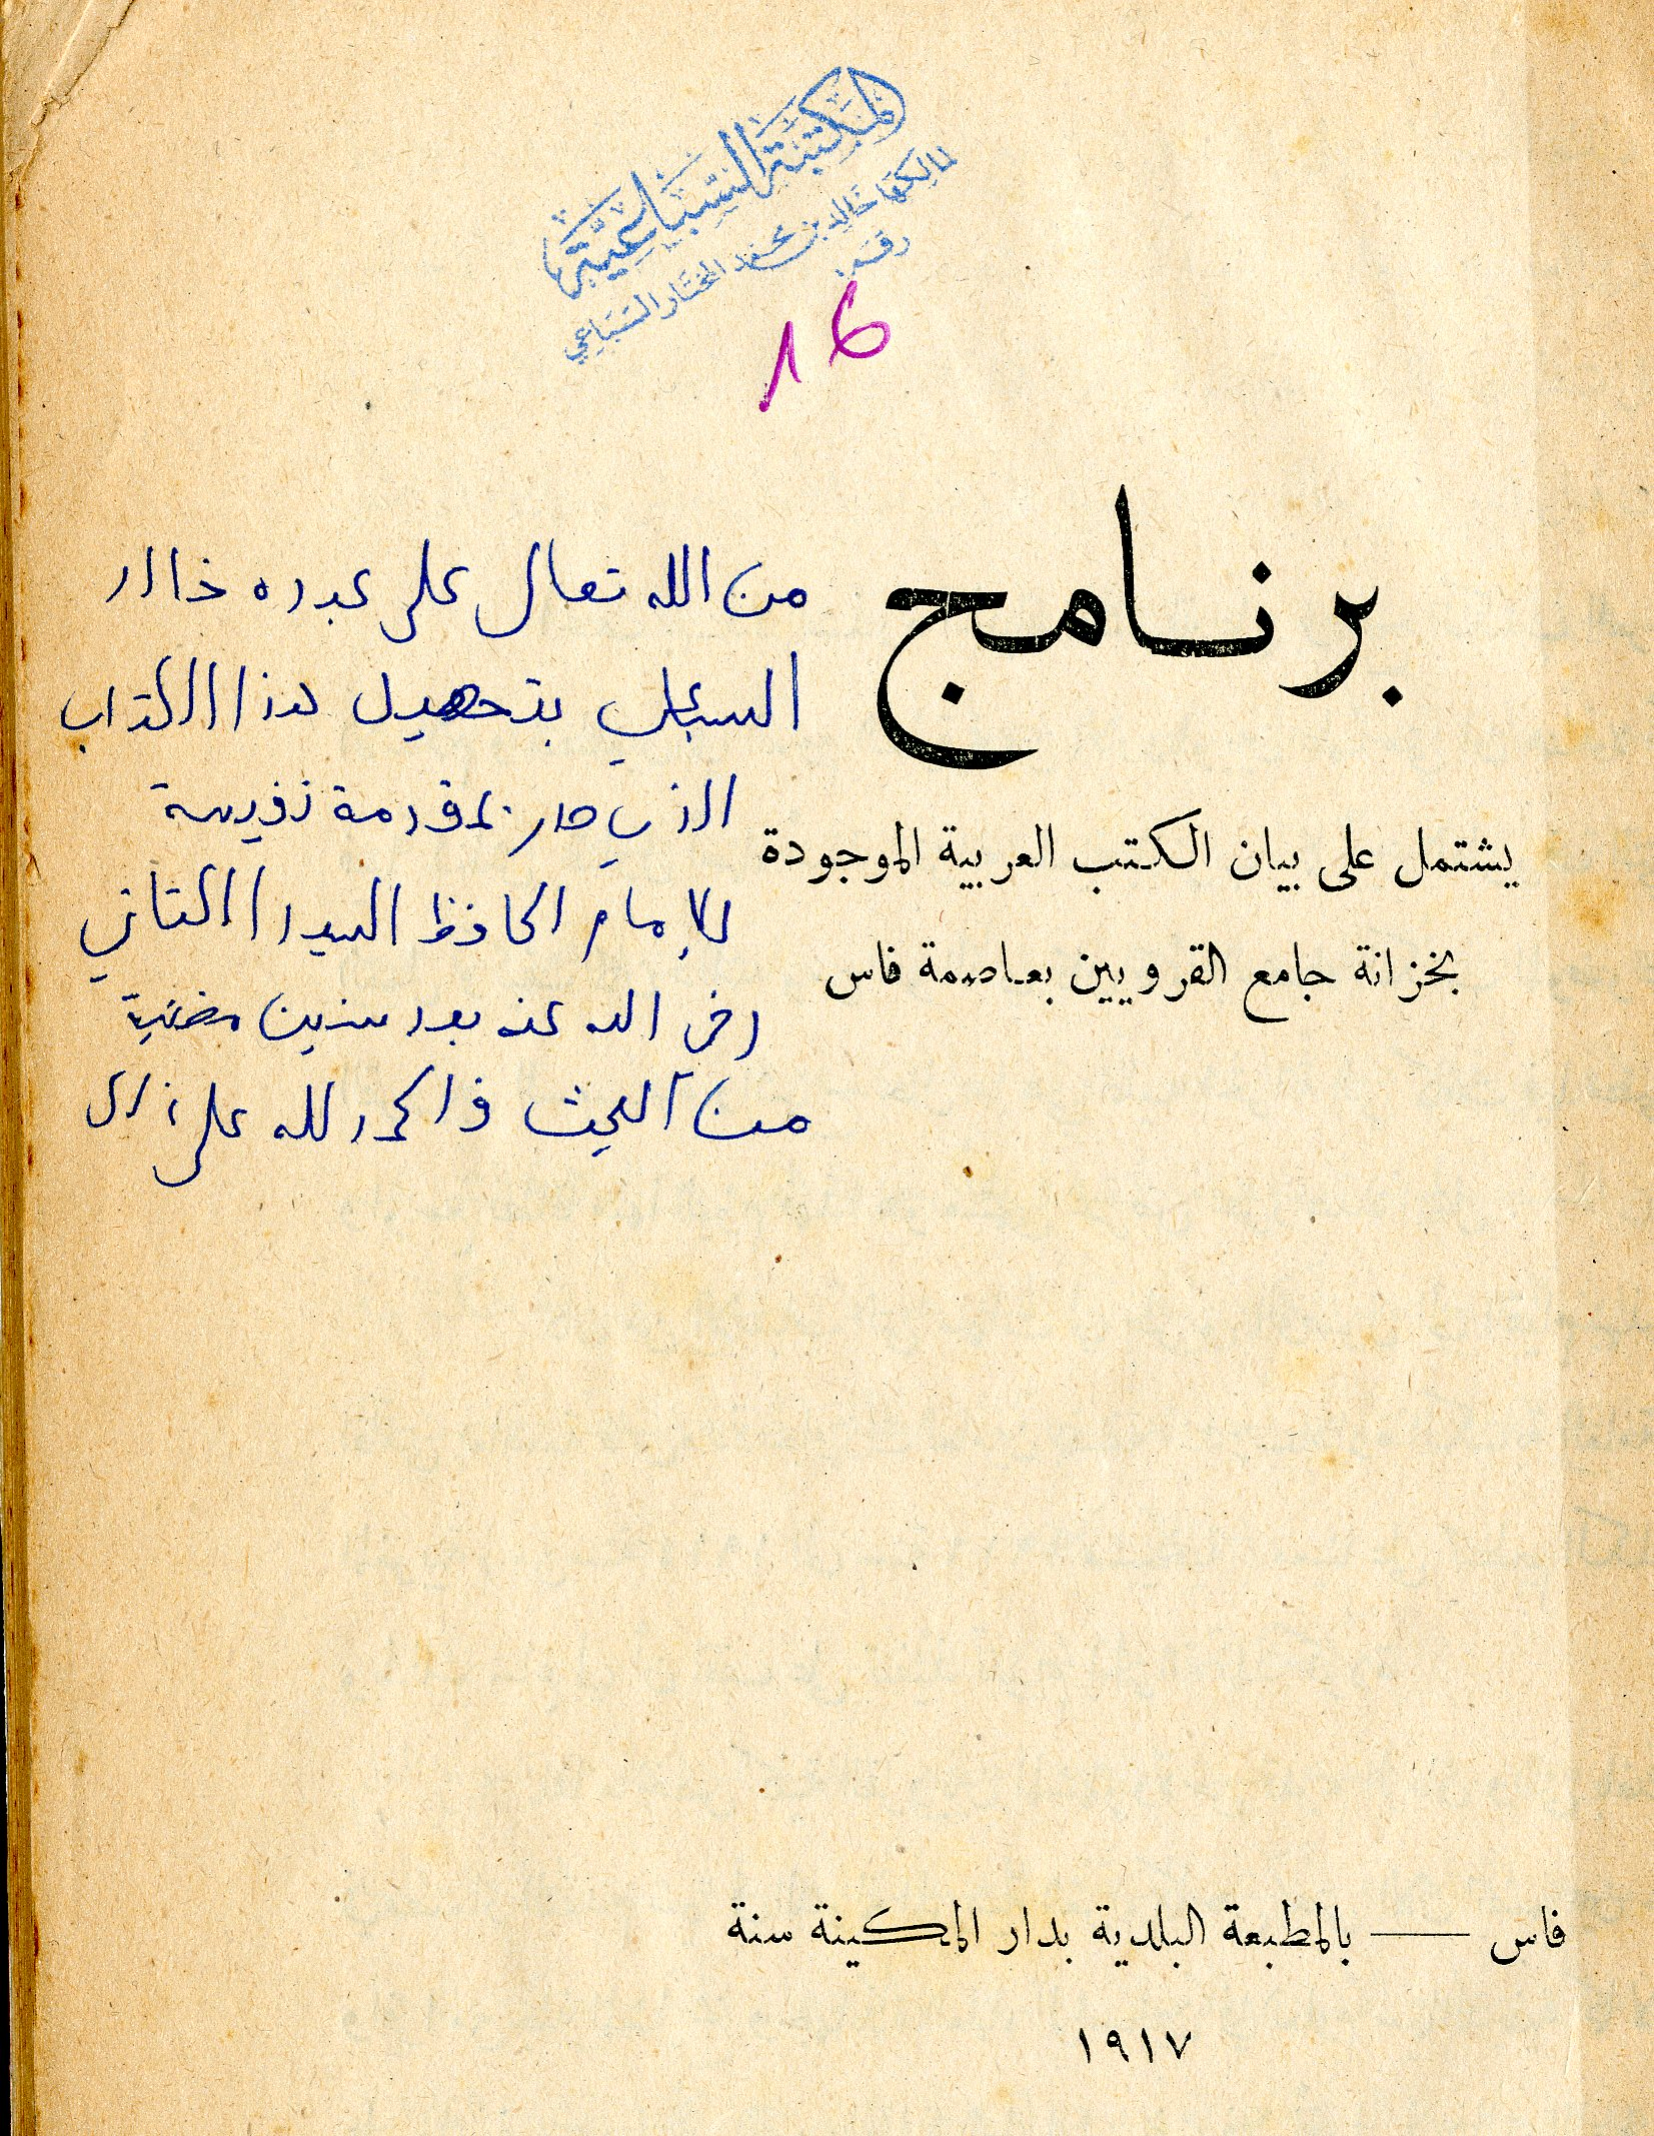 المكتبة السباعية
لمالكها خالد بن محمد المختار السباعي
رقم:
16
برنامج
يشتمل على بيان الكتب العربية الموجودة
بخزانة جامع القرويين بعاصمة فاس
من الله تعالى على عبده خالد
السباعي بتحصيل هذا الكتاب
الذي صدر بمقدمة نفيسة
للإمام الحافظ السيد الكتاني
رضي الله عنه بعد سنين مضنية
من البحث فالحمد لله على ذلك
فاس — بالمطبعة البلدية بدار المكينة سنة
١٩١٧